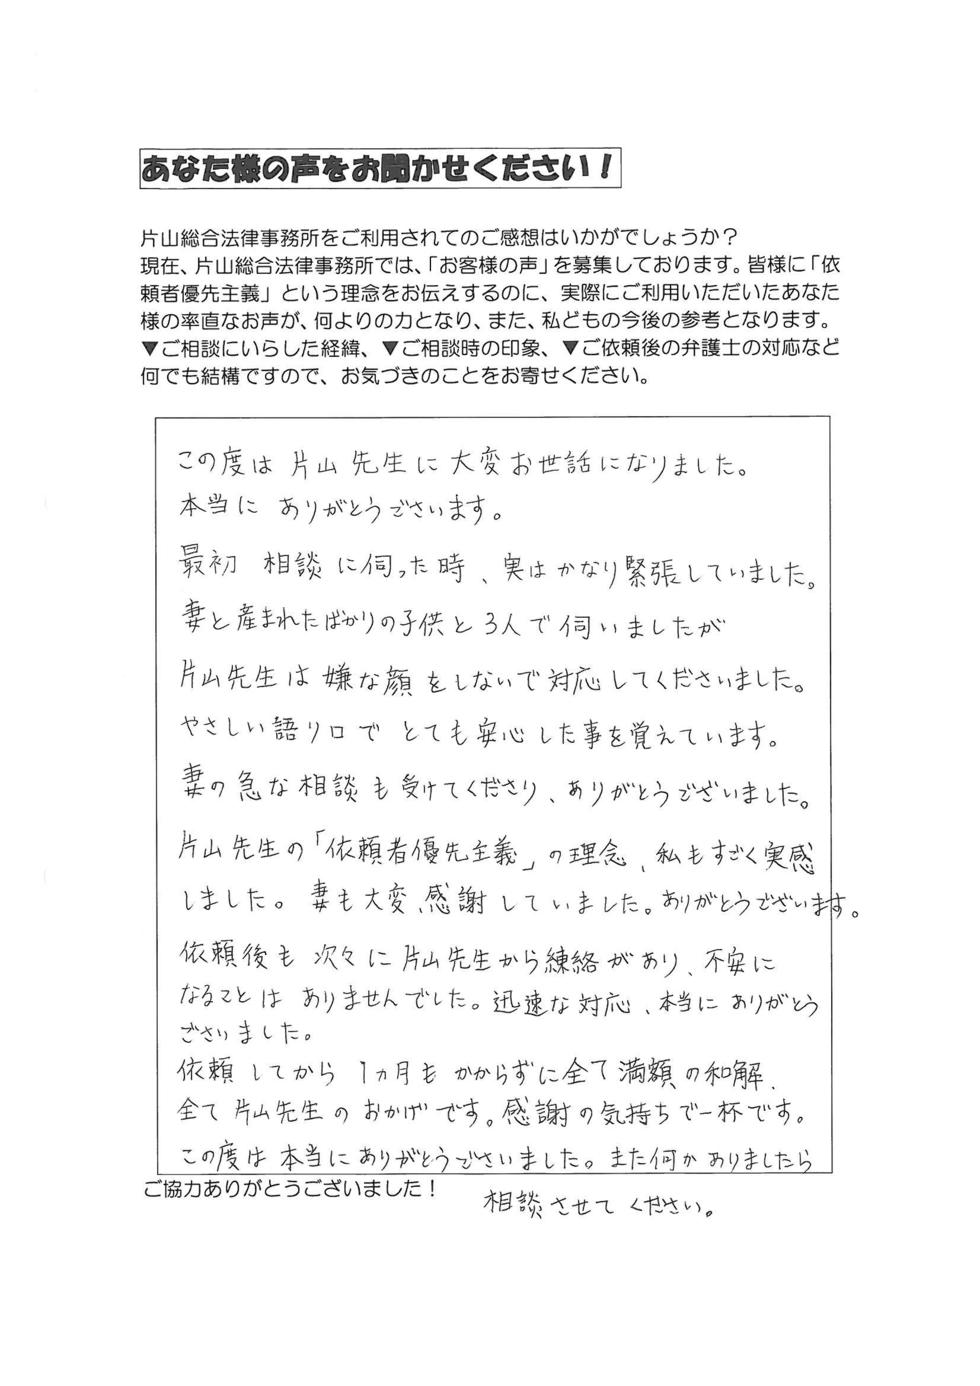 あなた様の声をお聞かせください！
片山総合法律事務所をご利用されてのご感想はいかがでしょうか？
現在、片山総合法律事務所では、「お客様の声」を募集しております。皆様に「依
頼者優先主義」という理念をお伝えするのに、実際にご利用いただいたあなた
様の率直なお声が、何よりの力となり、また、私どもの今後の参考となります。
▼ご相談にいらした経緯、▼ご相談時の印象、▼ご依頼後の弁護士の対応など
何でも結構ですので、お気づきのことをお寄せください。
この度は 片山 先生に 大変お世話になりました。
本当に ありがとうございます。
最初 相談に伺った時、実はかなり緊張していました。
妻と産まれたばかりの子供と3人で伺いましたが
片山先生は嫌な顔をしないで対応してくださいました。
やさしい語り口で とても安心した事を覚えています。
妻の急な相談も受けてくださり、ありがとうございました。
片山先生の「依頼者優先主義」の理念、私もすごく実感
しました。妻も大変、感謝していました。ありがとうございます。
依頼後も 次々に片山先生から練絡があり、不安に
なることは ありませんでした。迅速な対応、本当に ありがとう
ございました。
依頼してから 1ヵ月もかからずに全て満額の和解、
全て片山先生のおかげです。感謝の気持ちで一杯です。
この度は本当にありがとうございました。また何かありましたら
ご協力ありがとうございました！
相談させてください。